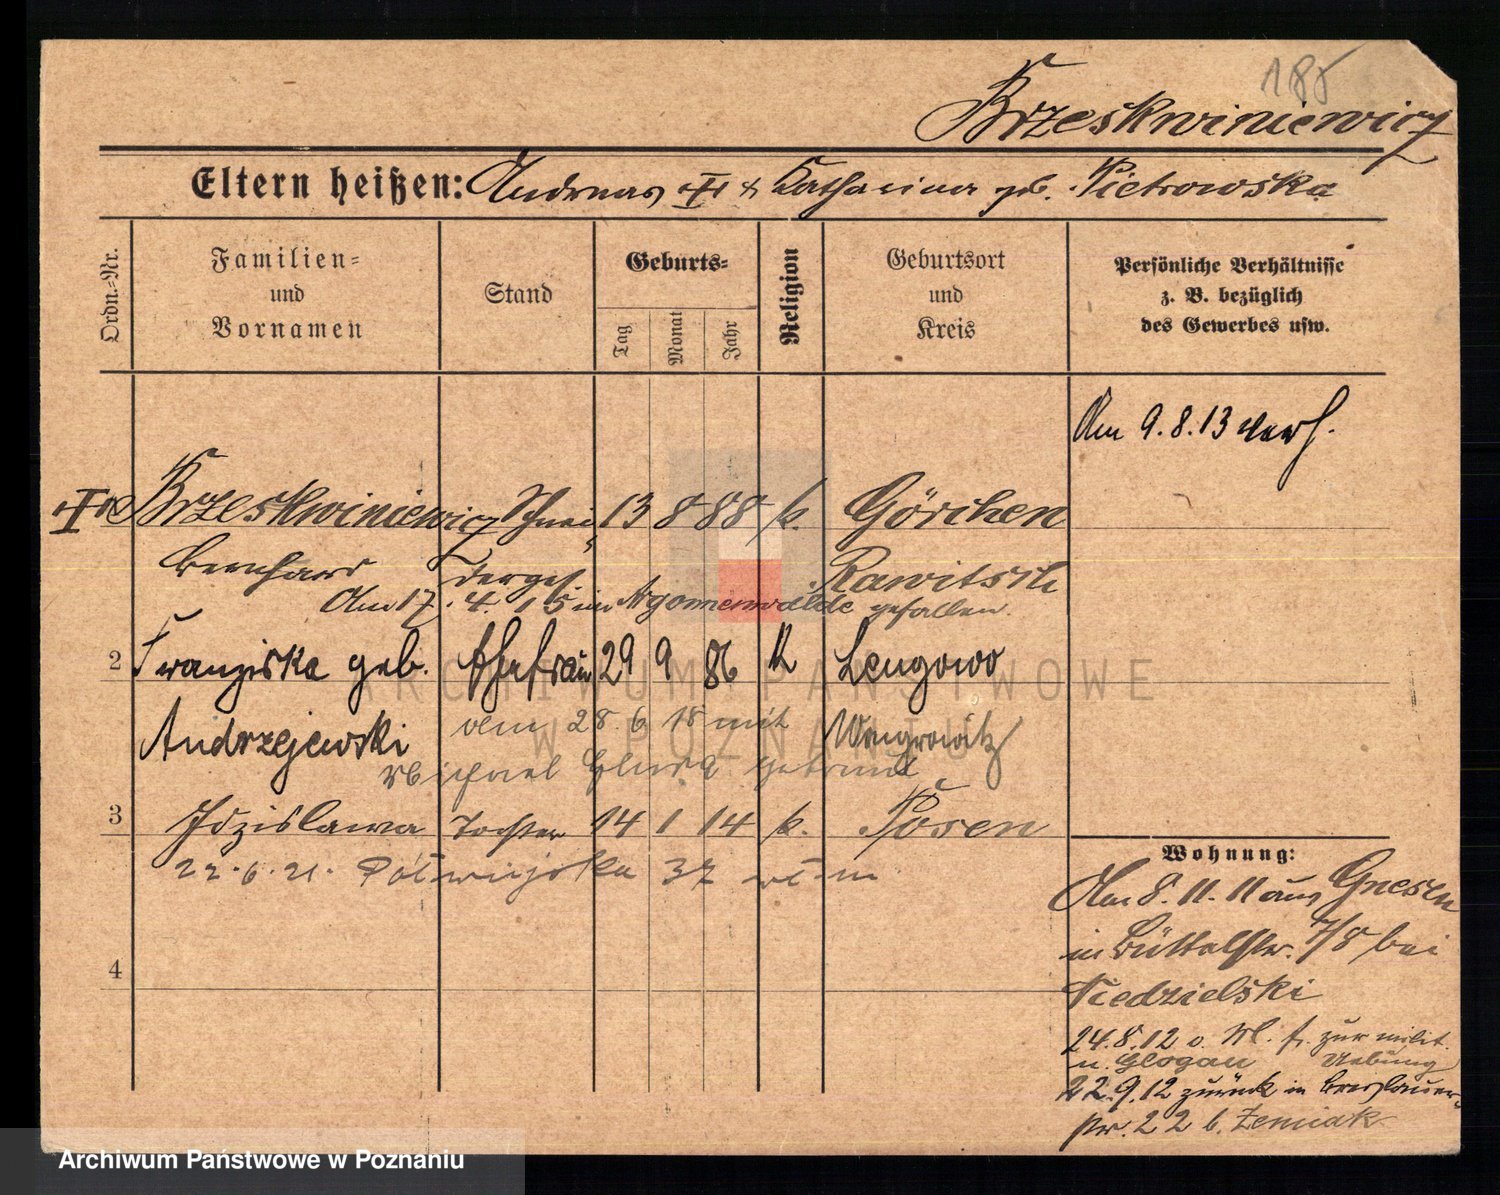 185
Brzeskwiniewicz
Eltern heißen: Andreas u. Katharina geb. Pietrowska
Ordn.-Nr.
Familien- und Vornamen
Stand
Geburts-
Tag
Monat
Jahr
Religion
Geburtsort und Kreis
Persönliche Verhältnisse z. B. bezüglich des Gewerbes usw.
Am 9.8.13 verh.
Brzeskwiniewicz Schnei 13 8 88 k. Görchen
Bernhard dergef. Rawitsch
Am 17.4.15 im Argonnenwalde gefallen.
2 Franziska geb. Ehefrau 29 9 86 k Lengowo
Andrzejewski Wongrowitz
dem 28.6 18 mit
Michael getraut
3 Zdzislawa Tochter 14 1 14 k. Posen
22.6.21. 37
4
Wohnung:
Am 8.11.11 aus Gnesen
in Büttelstr. 7/8 bei
Niedzielski
24.8.12 v. M. f. zur milit.
n. Glogau Uebung
22.9.12 zurück in Breslauer-
str. 22 b. Zemiak
ARCHIWUM PAŃSTWOWE
W POZNANIU
Archiwum Państwowe w Poznaniu